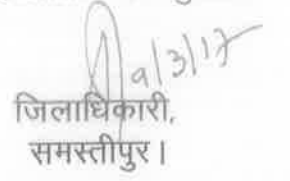 9/3/17
जिलाधिकारी,
समस्तीपुर।